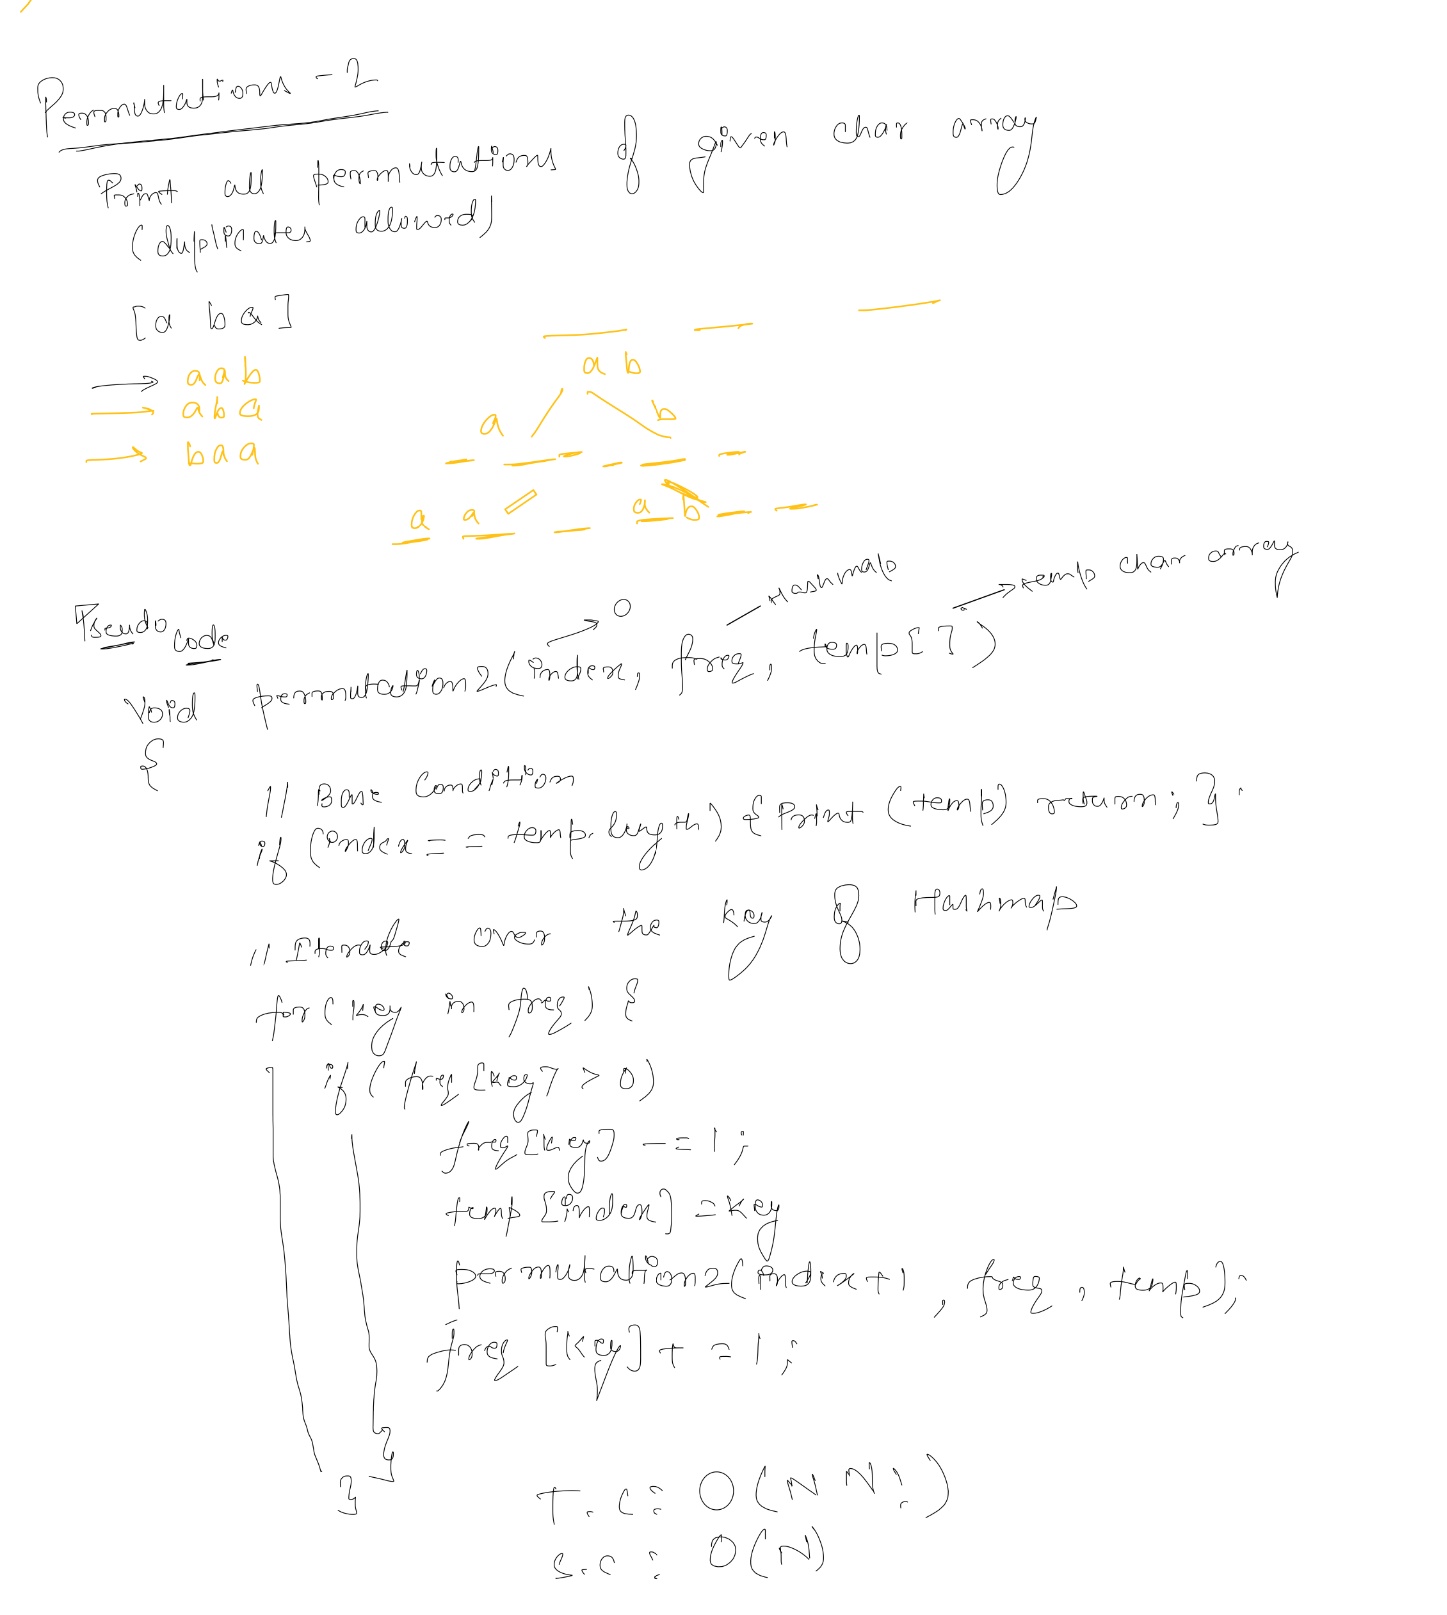 Permutations - 2
Print all permutations of given char array
(duplicates allowed)
[a b a]
a a b
a b a
b a a
a b
a b
a a a b
Pseudo code
0 Hashmap temp char array
Void permutation2(index, freq, temp[])
{
// Base Condition
if (index == temp.length) { Print (temp) return; }
// Iterate over the key of Hashmap
for (key in freq) {
if (freq [key] > 0)
freq[key] -= 1;
temp [index] = key
permutation2(index+1, freq, temp);
freq [key] += 1;
}
}
T.C: O(N N!)
S.C: O(N)